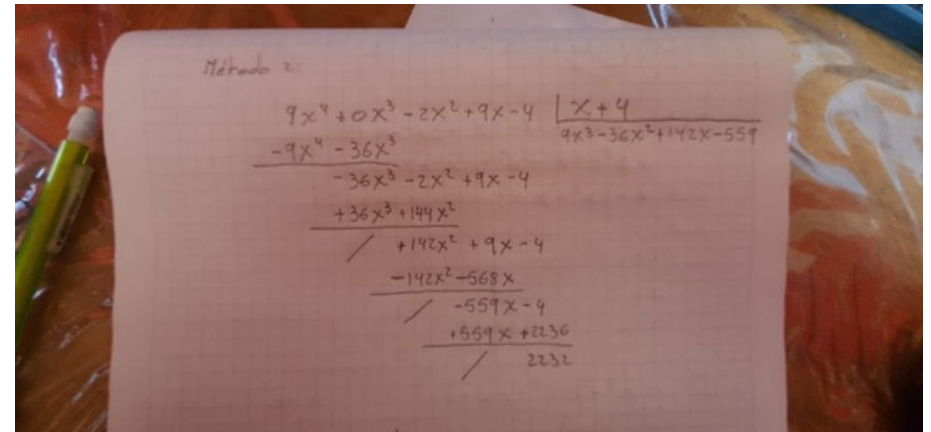 Método 2:
9x⁴ + 0x³ - 2x² + 9x - 4 | x + 4
-9x⁴ - 36x³ 9x³ - 36x² + 142x - 559
-36x³ - 2x² + 9x - 4
+36x³ + 144x²
/ +142x² + 9x - 4
-142x² - 568x
/ -559x - 4
+559x + 2236
/ 2232